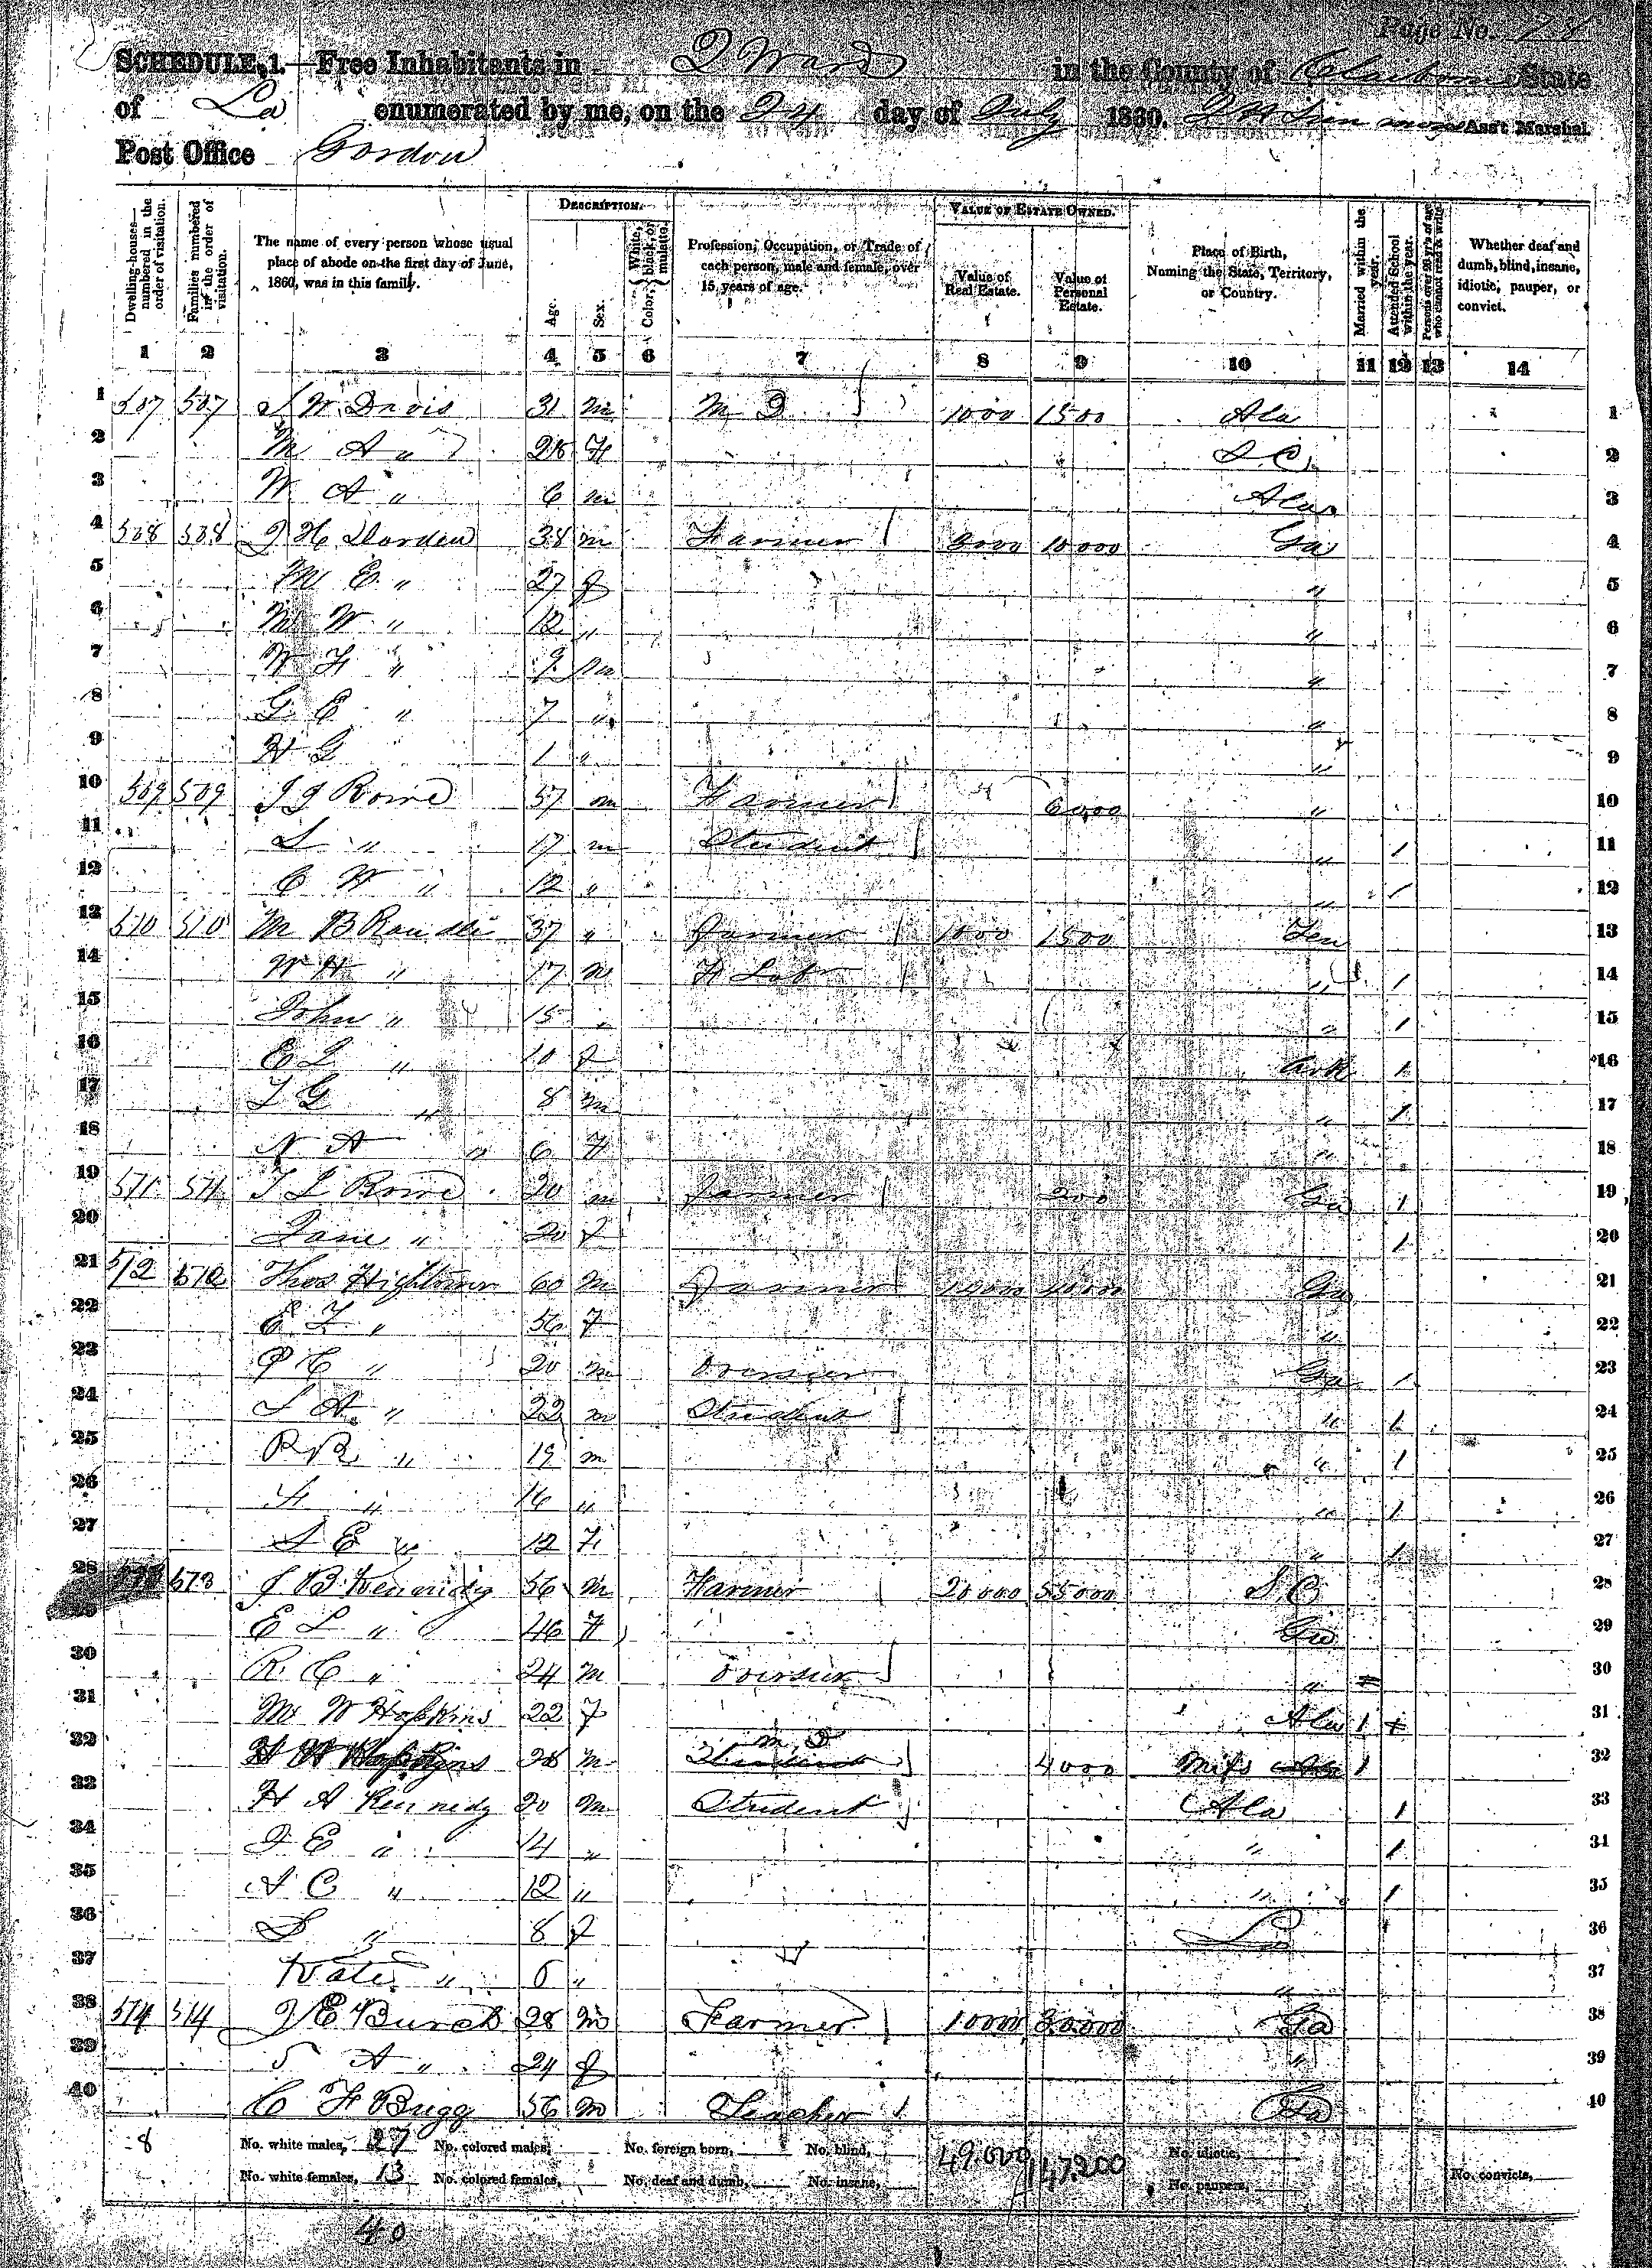 Page No. 78
SCHEDULE 1.—Free Inhabitants in 2 Ward in the County of Claiborne State
of La enumerated by me, on the 24 day of July 1860. Ass't Marshal.
Post Office Gordon
DESCRIPTION. VALUE OF ESTATE OWNED.
Dwelling-houses—numbered in the order of visitation. Families numbered in the order of visitation. The name of every person whose usual place of abode on the first day of June, 1860, was in this family. Age. Sex. Color, White, black, or mulatto. Profession, Occupation, or Trade of each person, male and female, over 15 years of age. Value of Real Estate. Value of Personal Estate. Place of Birth, Naming the State, Territory, or Country. Married within the year. Attended School within the year. Persons over 20 y'rs of age who cannot read & write. Whether deaf and dumb, blind, insane, idiotic, pauper, or convict.
1 2 3 4 5 6 7 8 9 10 11 12 13 14
1 507 507 S W Davis 31 m M D 1000 1500 Ala 1
2 M A " 28 F S C. 2
3 W A " 6 m Ala 3
4 508 508 J H Darden 38 m Farmer 10000 Ga 4
5 M E " 27 f " 5
6 M W " 12 " " 6
7 W F " 9 m " 7
8 G E " 7 " " 8
9 H G 1 " " 9
10 509 509 J J Rowe 57 m Farmer 6000 " 10
11 S " 17 m Student " / 11
12 C W " 12 " " / 12
13 510 510 M B Randle 37 " farmer 1000 1500 Ten 13
14 W H " 17 m F Labr " / 14
15 John " 15 " " / 15
16 E L " 10 f Ark / 16
17 T G " 8 m " / 17
18 N A " 6 F " 18
19 511 511 T L Rowe 20 m farmer 200 Ga / 19
20 Jane " 20 f / 20
21 512 512 Thos Hightower 60 m farmer Ga 21
22 E T " 56 F " 22
23 P C " 20 m Overseer Ga / 23
24 S A " 22 m Student " / 24
25 R B " 19 m " / 25
26 F " 16 " " / 26
27 S E " 12 F " / 27
28 513 J B Kennedy 56 m Farmer 20000 55000 S.C 28
29 E L " 46 F Ga 29
30 R. C " 24 m Overseer " 30
31 M W Hopkins 22 f Ala / 31
32 H W Hopkins 28 m M, D 4000 Miss / 32
33 H A Kennedy 20 m Student Ala / 33
34 J E " 14 " " / 34
35 A C " 12 " " / 35
36 S " 8 f La 36
37 Kate " 5 " " 37
38 514 514 J E Burch 28 m Farmer 10000 Ga 38
39 S A " 24 f " 39
40 C F Bugg 56 m Teacher Ga 40
8 No. white males, 27 No. colored males, No. foreign born, No. blind, 49.000 147.200 No. idiotic,
No. white females, 13 No. colored females, No. deaf and dumb, No. insane, No. paupers, No. convicts,
40